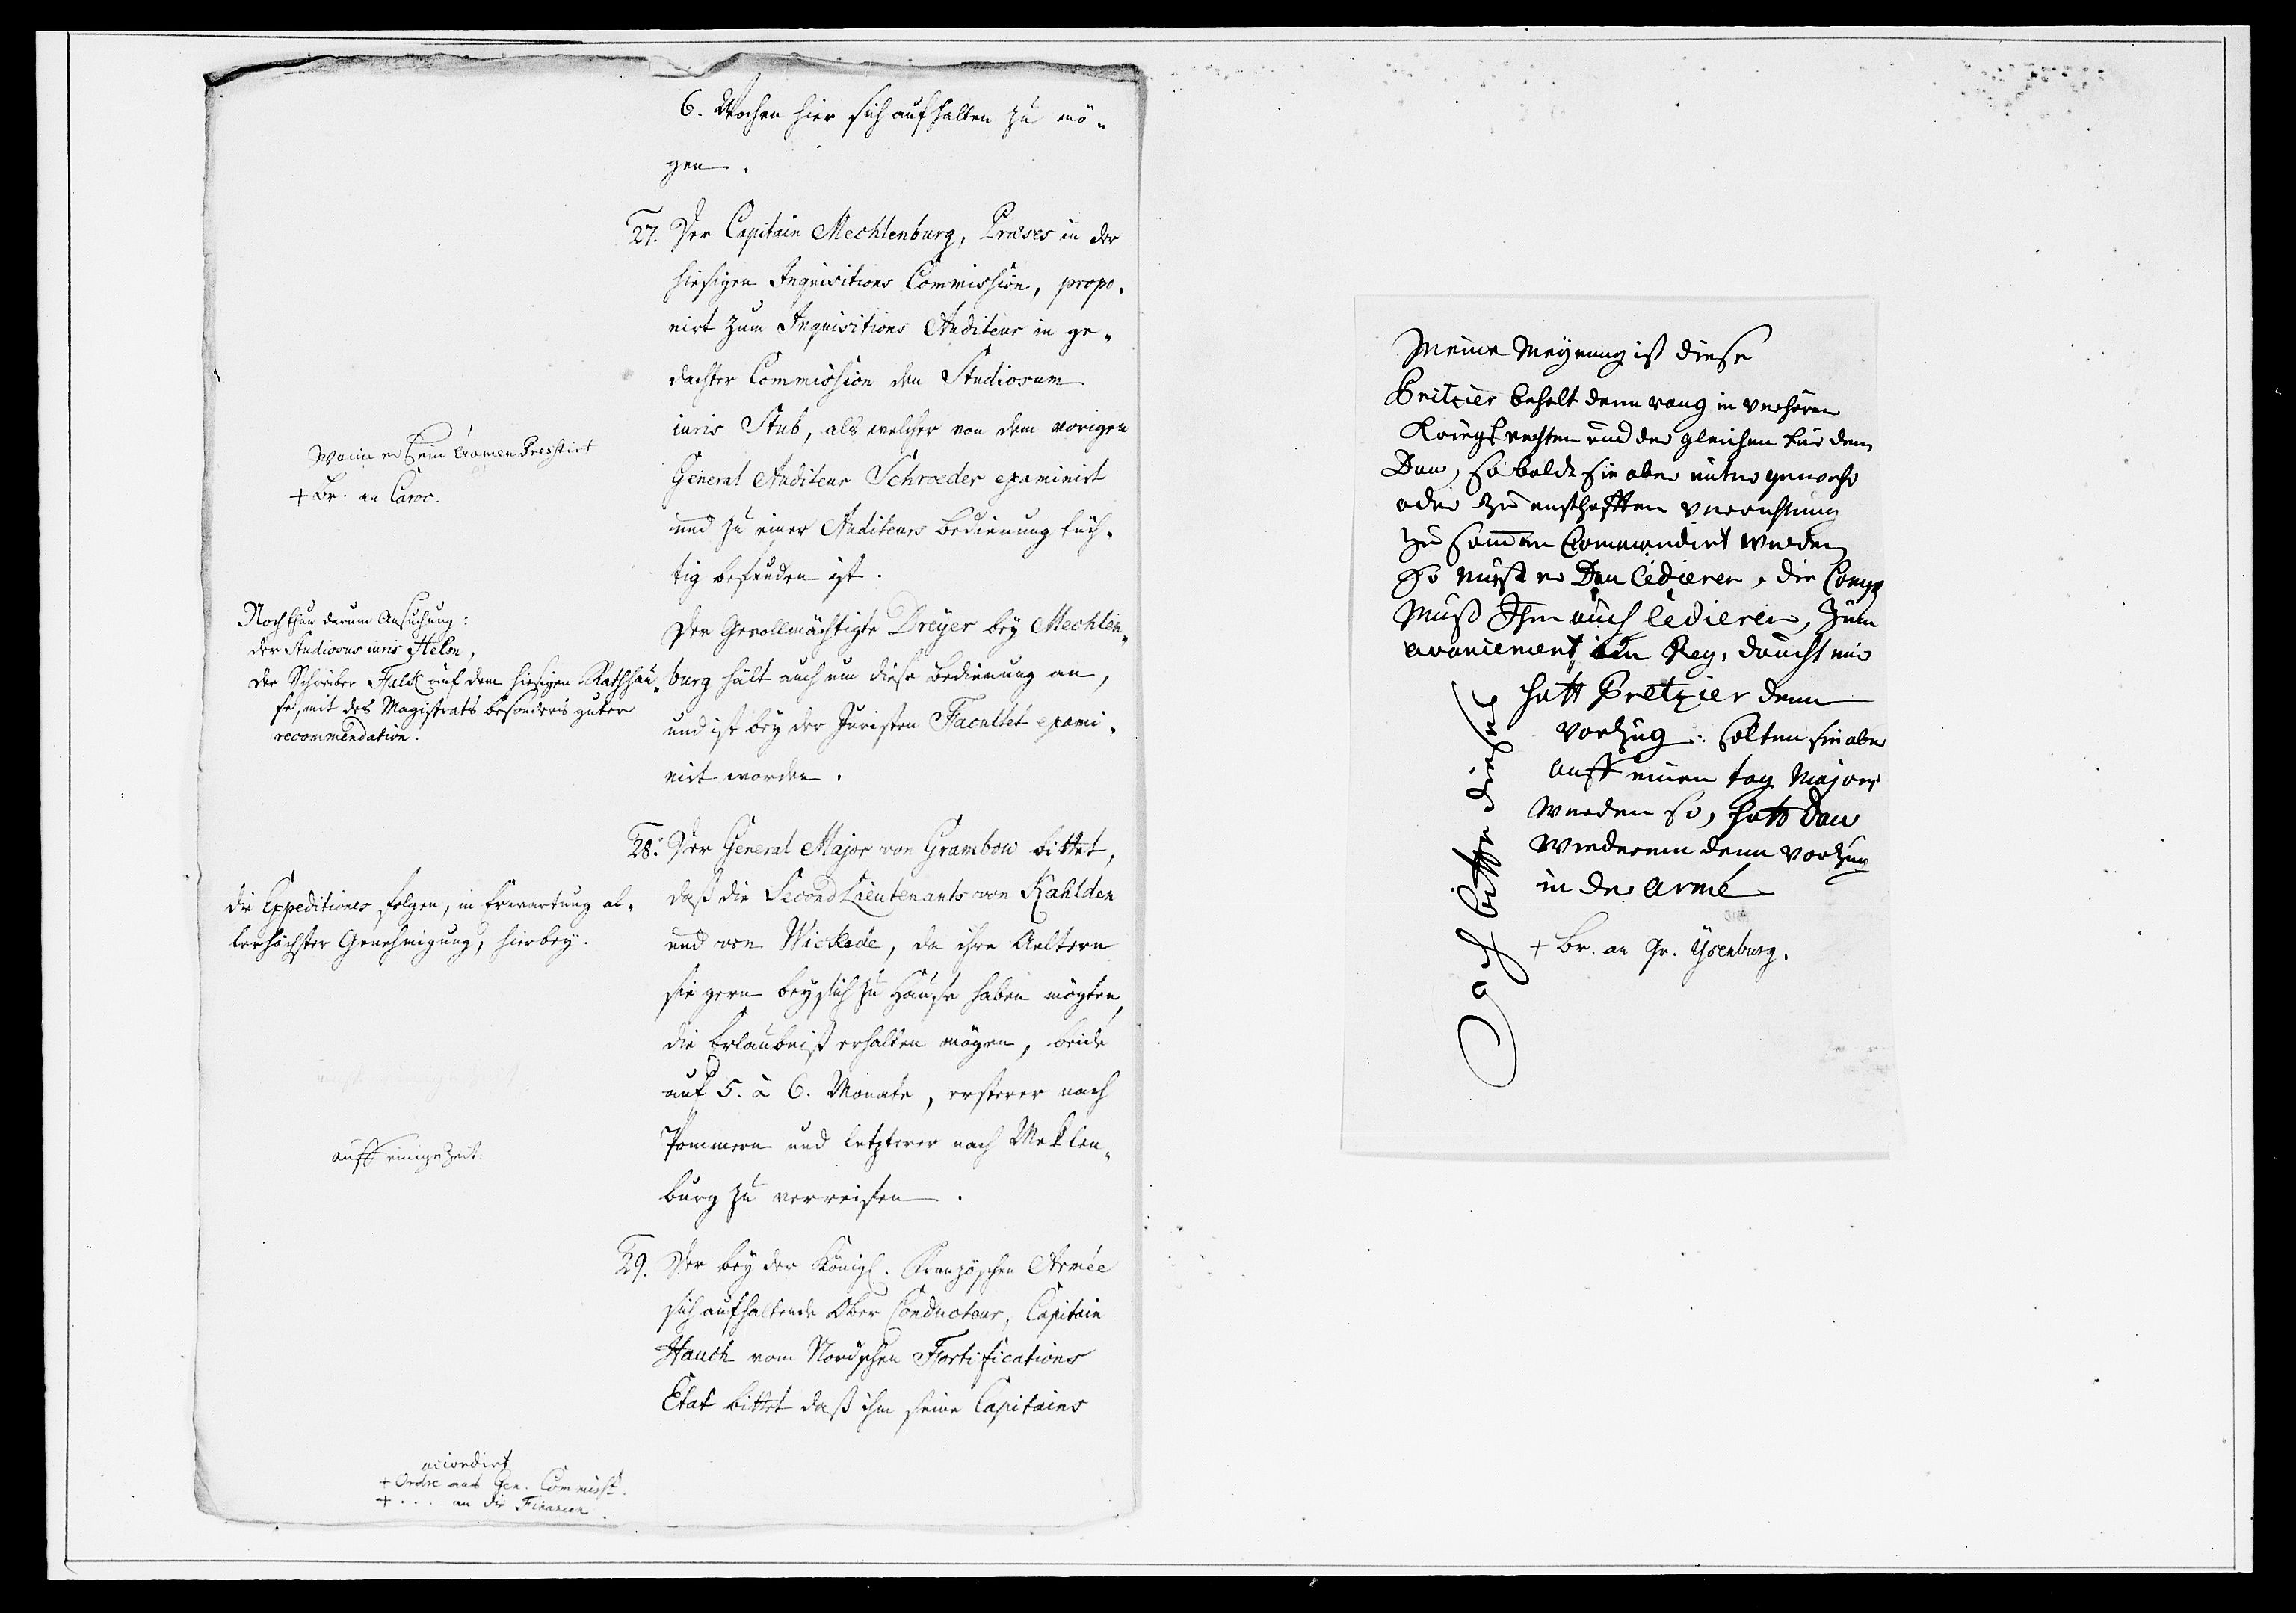 6. Wochen hier sich aufhalten zu mö-
gen.
27. Der Capitain Mechlenburg, Præses in der
hiesigen Inquisitions Commission, propo-
nirt zum Inquisitions Auditeur in ge-
dachter Commission den Studiosum
iuris Stub, als welcher von dem vorigen
General Auditeur Schroeder examinirt
und zu einer Auditeurs bedienung tüch-
tig befunden ist.
Der Gevollmächtigte Dreyer bey Mechlen-
burg hält auch um diese bedienung an,
und ist bey der Juristen Facultet exami-
nirt worden.
Wann er sein Examen Prestirt
+ Br. an Caroc.
Noch thun darum Ansuchung:
der Studiosus iuris Helm,
der Schreiber Falck auf dem hiesigen Rathhau-
se, mit des Magistrats besonders guter
recommendation.
28. Der General Major von Grambow bittet,
daß die Second Lieutenants von Kahlden
und von Wickede, da ihre Aeltern
sie gern bey sich zu Hause haben mögten,
die Erlaubniß erhalten mögen, beide
auf 5. à 6. Monate, ersterer nach
Pommern und letzterer nach Meklen-
burg zu verreisen.
die Expeditiones folgen, in Erwartung al-
lerhöchster Genehmigung, hierbey.
auff einige Zeit.
29. Der bey der Königl. Französchen Armée
sich aufhaltende Ober Conducteur, Capitain
Hauch vom Nordschen Fortifications
Etat bittet daß ihm seine Capitains
accordirt
+ Ordre ans Gen. Commisst.
+ ... an die Financen.
Meine Meynung ist diese
Britzier behalt denn rang in verhören
Kriegsrechten und der gleichen für dem
Dau, so baldt sie aber unter gewehr
oder zu ernsthafften verrichtung
zu sammen Commandirt werden
so muß er Dau Cedieren, die Comp
Muß Ihm auch Cedieren, zum
avancement im Reg, daucht mir
hatt Bretzier denn
vorzug: solten sie aber
auff einen tag Majors
werden so, hatt Dau
wiederum denn vorzug
in der Armé
+ Br. an Gr. Ysenburg.
Ich bitte dieses